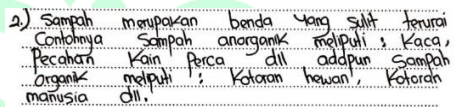 2.) Sampah merupakan benda yang sulit terurai
Contohnya Sampah anorganik meliputi : Kaca,
Pecahan Kain Perca dll adapun Sampah
Organik meliputi : Kotoran hewan, Kotoran
manusia dll.